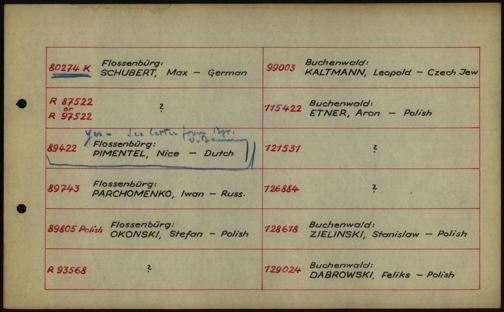 80274 K Flossenbürg:
SCHUBERT, Max – German
99003 Buchenwald:
KALTMANN, Leopold – Czech Jew
R 87522
or
R 97522
?
115422 Buchenwald:
ETNER, Aron – Polish
Yes – See letter from
89422 Flossenbürg:
PIMENTEL, Nice – Dutch
121531 ?
89743 Flossenbürg:
PARCHOMENKO, Iwan – Russ.
126884 ?
89805 Polish Flossenbürg:
OKONSKI, Stefan – Polish
128618 Buchenwald:
ZIELINSKI, Stanislaw – Polish
R 93568 ?
129024 Buchenwald:
DABROWSKI, Feliks – Polish